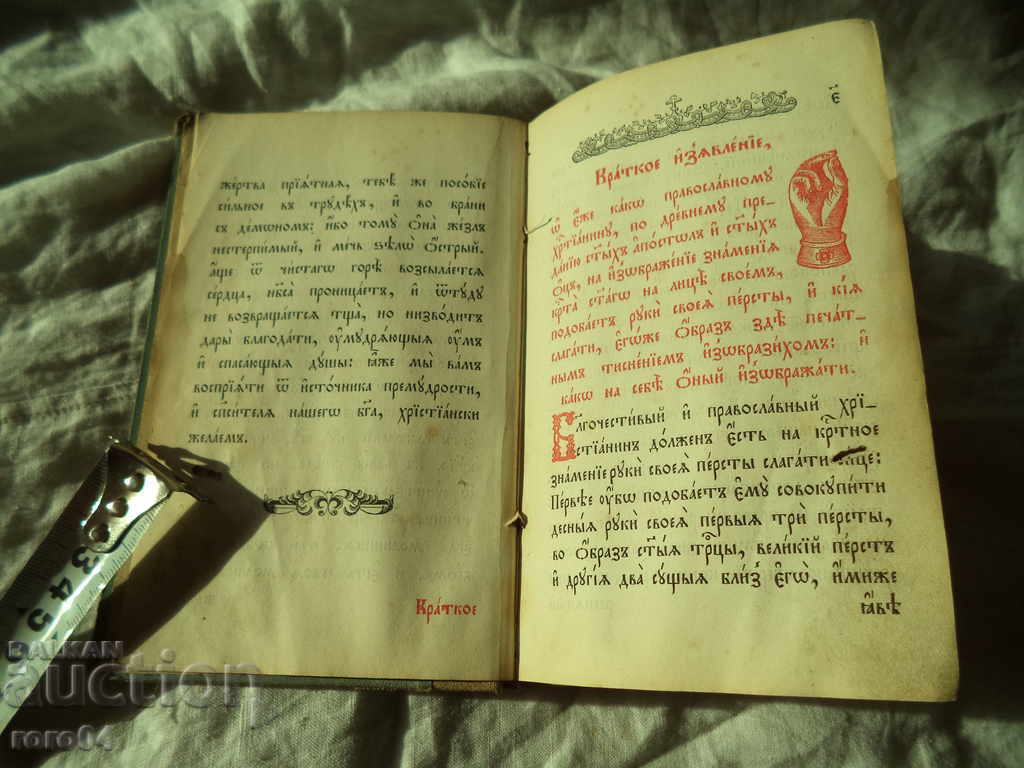 же́ртва прїѧ́тнаѧ, тебѣ̀ же посо́бїе
си́льное въ трꙋдѣ́хъ, и҆ во бра́ни
съ де́мѡномъ: и҆́бо томꙋ̀ ѻ҆на̀ же́злъ
нестерпи́мый, и҆ ме́чь ѕѣлѡ̀ ѻ҆́стрый.
а҆́ще ѿ чи́стагѡ горѣ̀ возсыла́етсѧ
се́рдца, нб҃са̀ проница́етъ, и҆ ѿтꙋ́дꙋ
не возвраща́етсѧ тща̀, но низво́дитъ
да́ры благода́ти, ᲂу҆мꙋдрѧ́ющыѧ ᲂу҆́мъ
и҆ спаса́ющыѧ дꙋ́шы: ꙗ҆̀же мы̀ ва́мъ
воспрїѧ́ти ѿ и҆сто́чника премꙋ́дрости,
и҆ сп҃си́телѧ на́шегѡ бг҃а, хрїстїа́нски
жела́емъ.
Кра́ткое
є҃
Кра́ткое и҆з̾ѧвле́нїе,
ѡ҆ є҆́же ка́кѡ правосла́вномꙋ
хр҇тїа́нинꙋ, по дре́внемꙋ пре-
да́нїю ст҃ы́хъ а҆по́стѡлъ и҆ ст҃ы́хъ
ѻ҆ц҃ъ, на и҆зѡбраже́нїе зна́менїѧ
кр҇та̀ ст҃а́гѡ на лицѣ̀ свое́мъ,
подоба́етъ рꙋкѝ своеѧ̀ пе́рсты, и҆ кі́ѧ
слага́ти, є҆гѡ́же ѻ҆́бразъ здѣ̀ печа́т-
нымъ тисне́нїемъ и҆зѡбрази́хомъ: и҆
ка́кѡ на себѣ̀ ѻ҆́ный и҆зѡбража́ти.
Бл҃гочести́вый и҆ правосла́вный хрї-
стїа́нинъ до́лженъ є҆́сть на кр҇тное
зна́менїе рꙋкѝ своеѧ̀ пе́рсты слага́ти
Пе́рвѣе ᲂу҆́бѡ подоба́етъ є҆мꙋ̀ совокꙋпи́ти
десны́ѧ рꙋкѝ своеѧ̀ пе́рвыѧ трѝ пе́рсты,
во ѻ҆́бразъ ст҃ы́ѧ трⷪ҇цы, вели́кїй пе́рстъ
и҆ дрꙋгі́ѧ два̀ сꙋ́щыѧ бли́з̾ є҆гѡ̀, и҆́миже
ꙗ҆́вѣ
3 4 5
BALKAN
auction
roro04